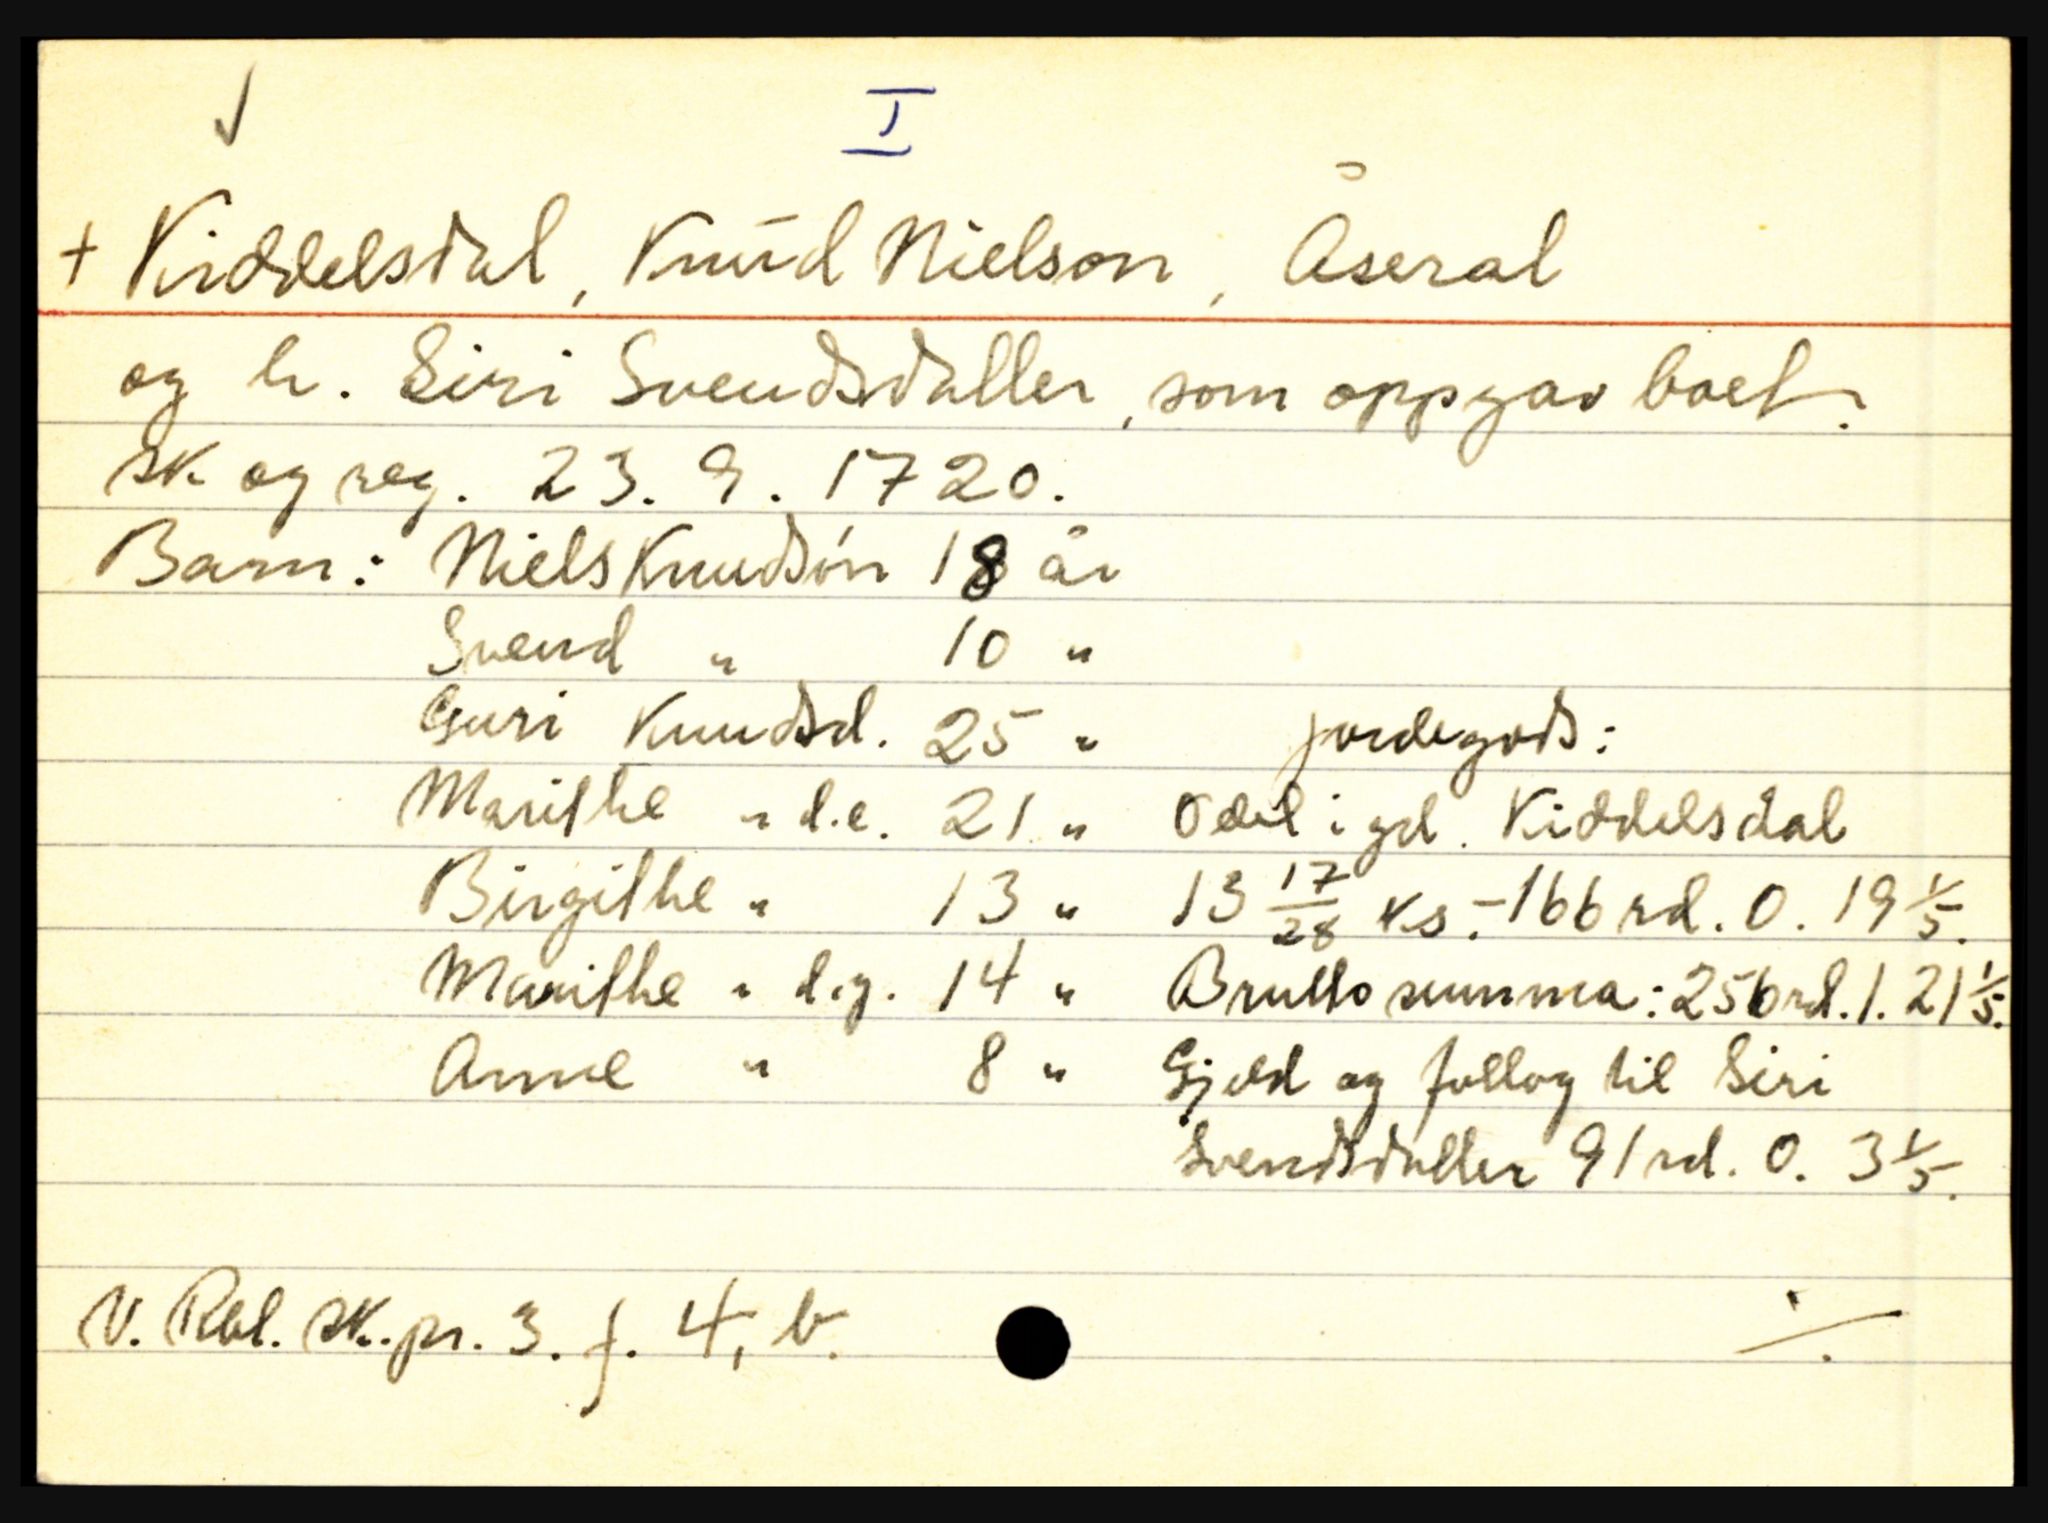 I
+ Kiddelsdal, Knud Nielson, Åseral
og h. Siri Svendsdatter, som oppgav boet.
sk og reg. 23. 9. 1720.
Barn: Niels Knudsøn 18 år
Svend " 10 "
Guri Knudsd. 25 " jordegods:
Marithe " d.e. 21 " Odel i gd. Kiddelsdal
Birgithe " 13 " 13 17/28 ks.- 166 rd. 0. 19 1/5.
Marithe " d.y. 14 " Brutto summa: 256 rd. 1. 21 1/5.
Anne " 8 " Gjeld og follog til Siri
Svendsdatter 91 rd. 0. 3 1/5.
N. Rbl. sk.pr. 3. f. 4, b.